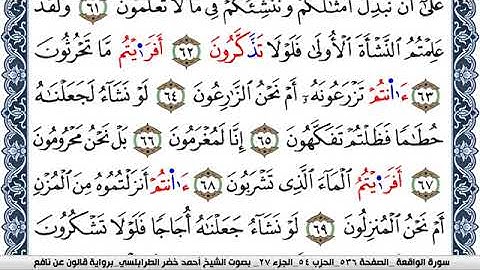 عَلَىٰٓ أَن نُّبَدِّلَ أَمْثَٰلَكُمْ وَنُنشِئَكُمْ فِے مَا لَا تَعْلَمُونَ ٦١ وَلَقَدْ
عَلِمْتُمُ النَّشْأَةَ الْأُولَىٰ فَلَوْلَا تَذَّكَّرُونَ ٦٢ أَفَرَٰٓيْتُم مَّا تَحْرُثُونَ
٦٣ ءَا۬نتُمْ تَزْرَعُونَهُۥٓ أَمْ نَحْنُ الزَّٰرِعُونَ ٦٤ لَوْ نَشَآءُ لَجَعَلْنَٰهُ
حُطَٰمًا فَظَلْتُمْ تَفَكَّهُونَ ٦٥ إِنَّا لَمُغْرَمُونَ ٦٦ بَلْ نَحْنُ مَحْرُومُونَ
٦٧ أَفَرَٰٓيْتُمُ الْمَآءَ الَّذِے تَشْرَبُونَ ٦٨ ءَا۬نتُمْ أَنزَلْتُمُوهُ مِنَ الْمُزْنِ
أَمْ نَحْنُ الْمُنزِلُونَ ٦٩ لَوْ نَشَآءُ جَعَلْنَٰهُ أُجَاجًا فَلَوْلَا تَشْكُرُونَ
سورة الواقعة _الصفحة ٥٣٦_الحزب ٥٤_الجزء ٢٧_ بصوت الشيخ أحمد خضر الطرابلسي_برواية قالون عن نافع